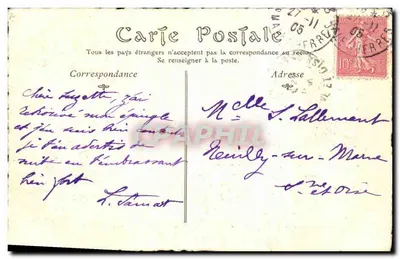 Carte Postale
Tous les pays étrangers n'acceptent pas la correspondance au recto
Se renseigner à la poste.
Correspondance
Adresse
27-11
05
10
Chère Suzette j'ai
retrouvé mon épingle
et j'en suis bien contente
je t'en avertis de
suite en t'embrassant
bien fort
Melle S. Lallement
Neuilly-sur-Marne
S. et Oise
CPAPHIL